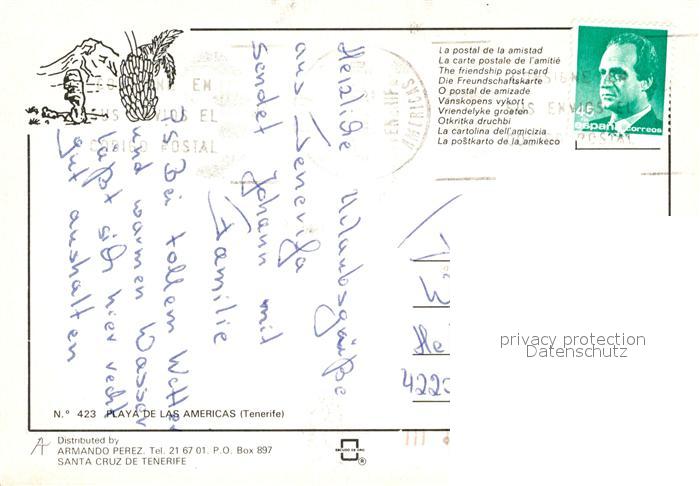 La postal de la amistad
La carte postale de l'amitié
The friendship post card
Die Freundschaftskarte
O postal de amizade
Vänskopens vykort
Vriendelyke groeten
Otkritka druchbi
La cartolina dell'amicizia
La poŝtkarto de la amikeco
españa correos
EN
SUS ENVIOS EL
CODIGO POSTAL
AMERICAS
Herzlige Urlaubsgrüße
aus Teneriffa
sendet Johann mit
Familie
PS Bei tollem Wetter
und warmen Wasser
läßt sich hier recht
gut aushalten
4220
privacy protection
Datenschutz
N.º 423 PLAYA DE LAS AMERICAS (Tenerife)
Distributed by
ARMANDO PEREZ. Tel. 21 67 01. P.O. Box 897
SANTA CRUZ DE TENERIFE
ESCUDO DE ORO
®